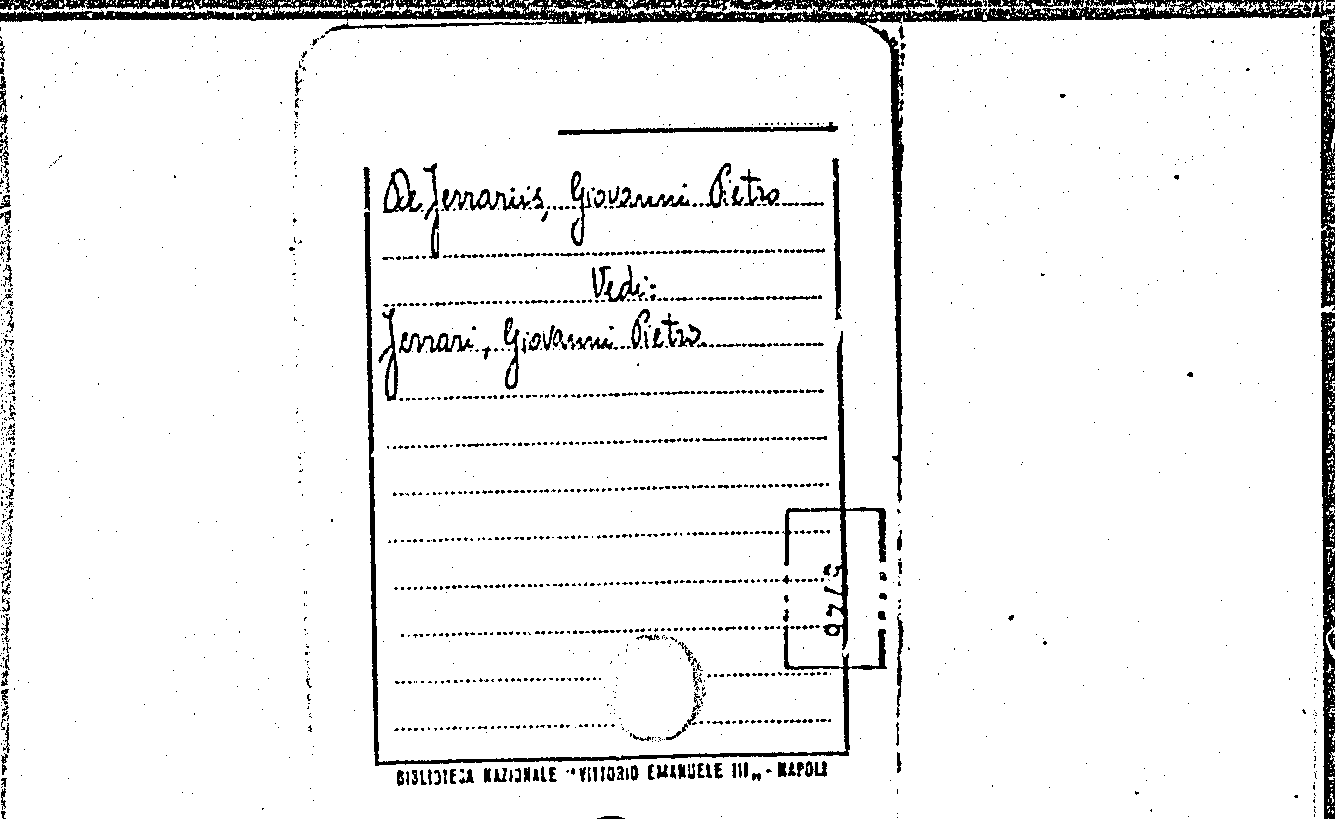 De Ferrariis, Giovanni Pietro
Vedi:
Ferrari, Giovanni Pietro
BIBLIOTECA NAZIONALE "VITTORIO EMANUELE III„ - NAPOLI